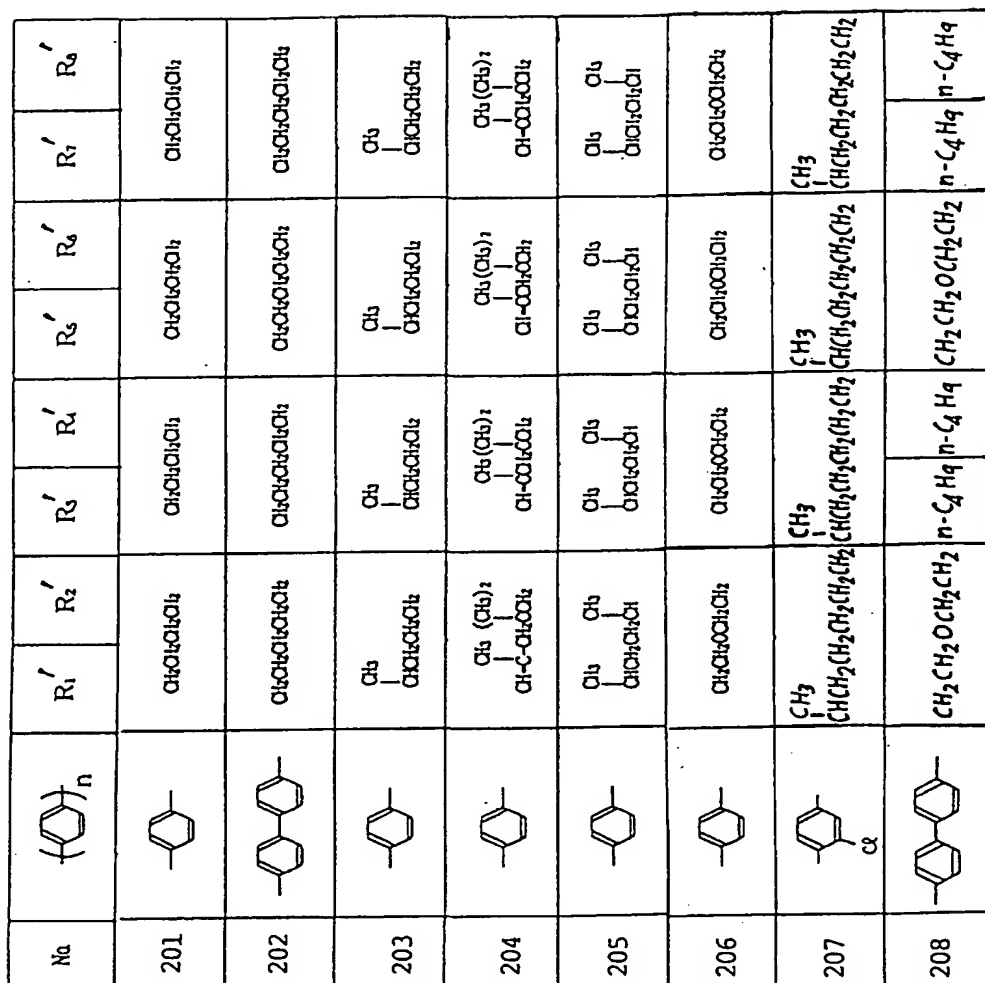 No. ( )n R₁' R₂' R₃' R₄' R₅' R₆' R₇' R₈'
201 CH₂CH₂CH₂CH₂ CH₂CH₂CH₂CH₂ CH₂CH₂CH₂CH₂ CH₂CH₂CH₂CH₂
202 CH₂CH₂CH₂CH₂CH₂ CH₂CH₂CH₂CH₂CH₂ CH₂CH₂CH₂CH₂CH₂ CH₂CH₂CH₂CH₂CH₂
CH₃ CH₃ CH₃ CH₃
203 CHCH₂CH₂CH₂ CHCH₂CH₂CH₂ CHCH₂CH₂CH₂ CHCH₂CH₂CH₂
CH₃ (CH₃)₂ CH₃(CH₃)₂ CH₃(CH₃)₂ CH₃(CH₃)₂
204 CH-C-CH₂CCH₂ CH-CCH₂CCH₂ CH-CCH₂CCH₂ CH-CCH₂CCH₂
CH₃ CH₃ CH₃ CH₃ CH₃ CH₃ CH₃ CH₃
205 CHCH₂CH₂CH CHCH₂CH₂CH CHCH₂CH₂CH CHCH₂CH₂CH
206 CH₂CH₂OCH₂CH₂ CH₂CH₂OCH₂CH₂ CH₂CH₂OCH₂CH₂ CH₂CH₂OCH₂CH₂
CH₃ CH₃ CH₃ CH₃
207 Cl CHCH₂CH₂CH₂CH₂CH₂ CHCH₂CH₂CH₂CH₂CH₂ CHCH₂CH₂CH₂CH₂CH₂ CHCH₂CH₂CH₂CH₂CH₂
208 CH₂CH₂OCH₂CH₂ n-C₄H₉ n-C₄H₉ CH₂CH₂OCH₂CH₂ n-C₄H₉ n-C₄H₉